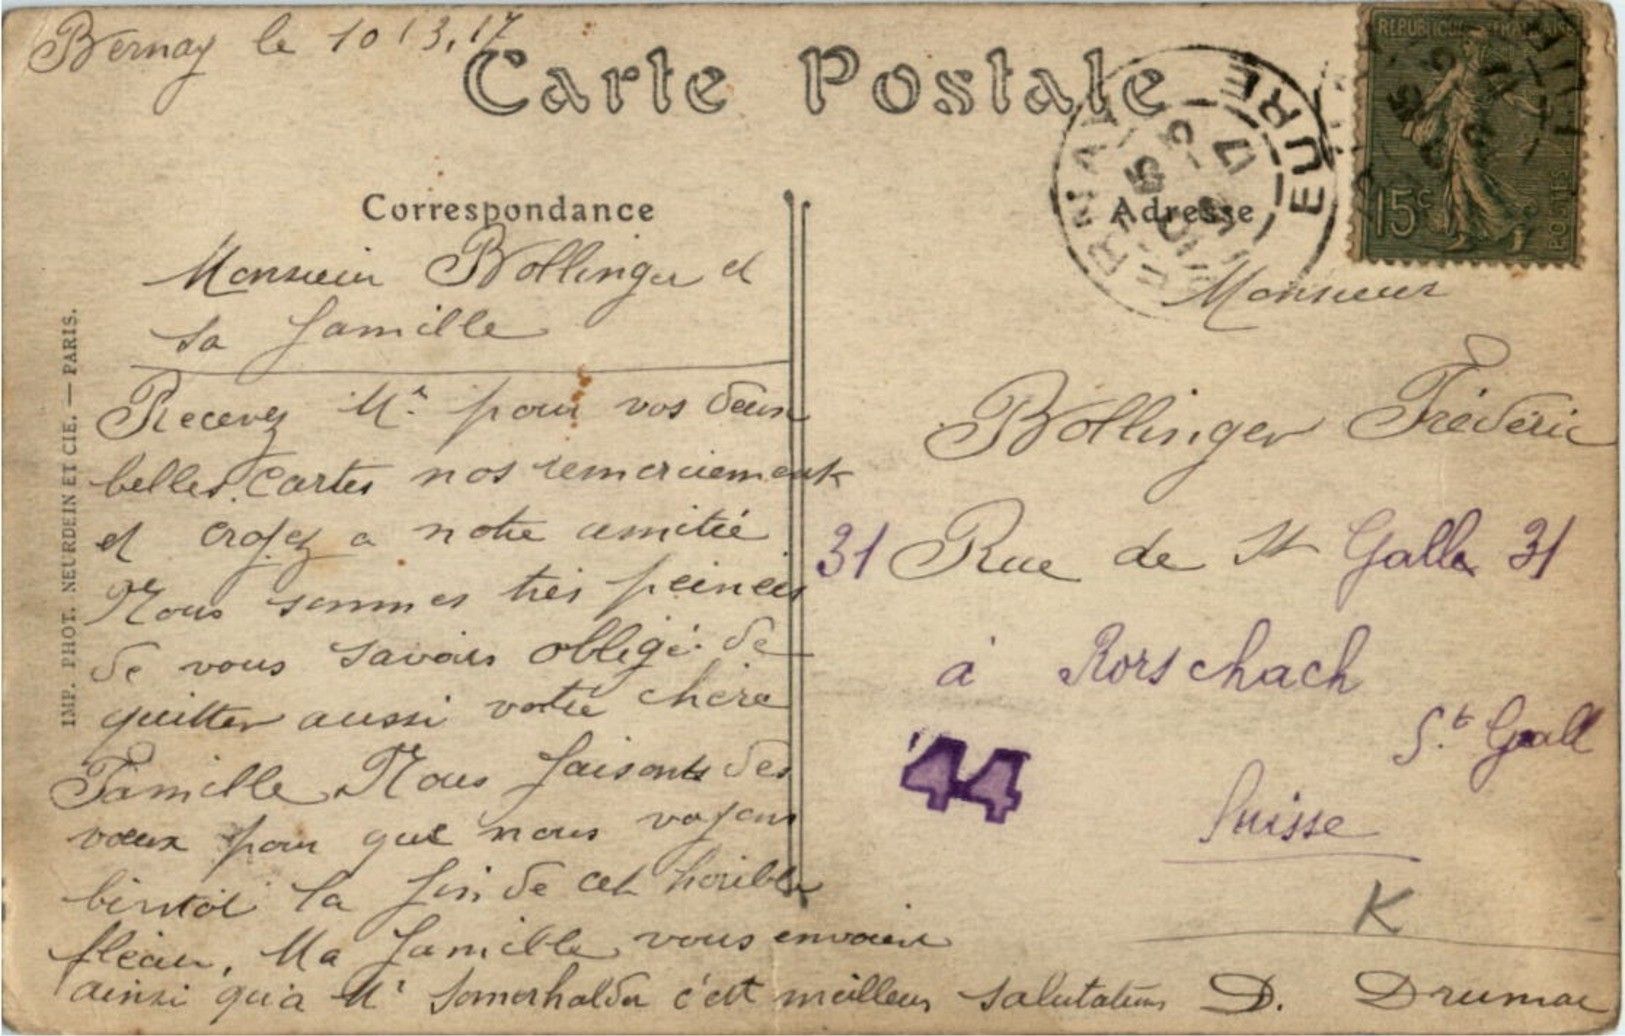 Bernay le 10 13.17
Carte Postale
EURE
REPUBLIQUE FRANÇAISE
15c
POSTES
Correspondance
Adresse
IMP. PHOT. NEURDEIN ET CIE. — PARIS.
Monsieur Bollinger et
sa famille
Recevez Mr. pour vos deux
belles Cartes nos remerciements
et croyez a notre amitié
Nous sommes très peinées
de vous savoirs obligé de
quitter aussi votre chère
Famille Nous faisons des
vœux pour que nous voyons
bientôt la fin de cet horible
fléau, Ma famille vous envoient
ainsi qu'a Mr Somerhalder c'ett meilleurs salutations D. Drumar
Monsieur
Bollinger Frédéric
31 Rue de St Galle 31
à Rorschach
St. Gall
Suisse
44
K